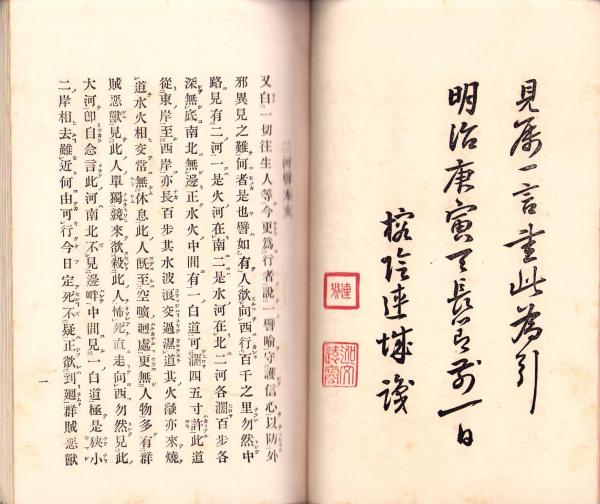 見属一言書此為引
明治庚寅天長節前一日
榕陰連城識
又白一切往生人等今更爲行者說一譬喩守護信心以防外
邪異見之難何者是也譬如有人欲向西行百千之里忽然中
路見有二河一是火河在南二是水河在北二河各濶百步各
深無底南北無邊正水火中間有一白道可濶四五寸許此道
從東岸至西岸亦長百步其水波浪交過濕道其火燄亦來燒
道水火相交常無休息此人既至空曠迴處更無人物多有群
賊惡獸見此人單獨競來欲殺此人怖死直走向西忽然見此
大河卽自念言此河南北不見邊畔中間見一白道極是狹小
二岸相去雖近何由可行今日定死不疑正欲到廻群賊惡獸
一